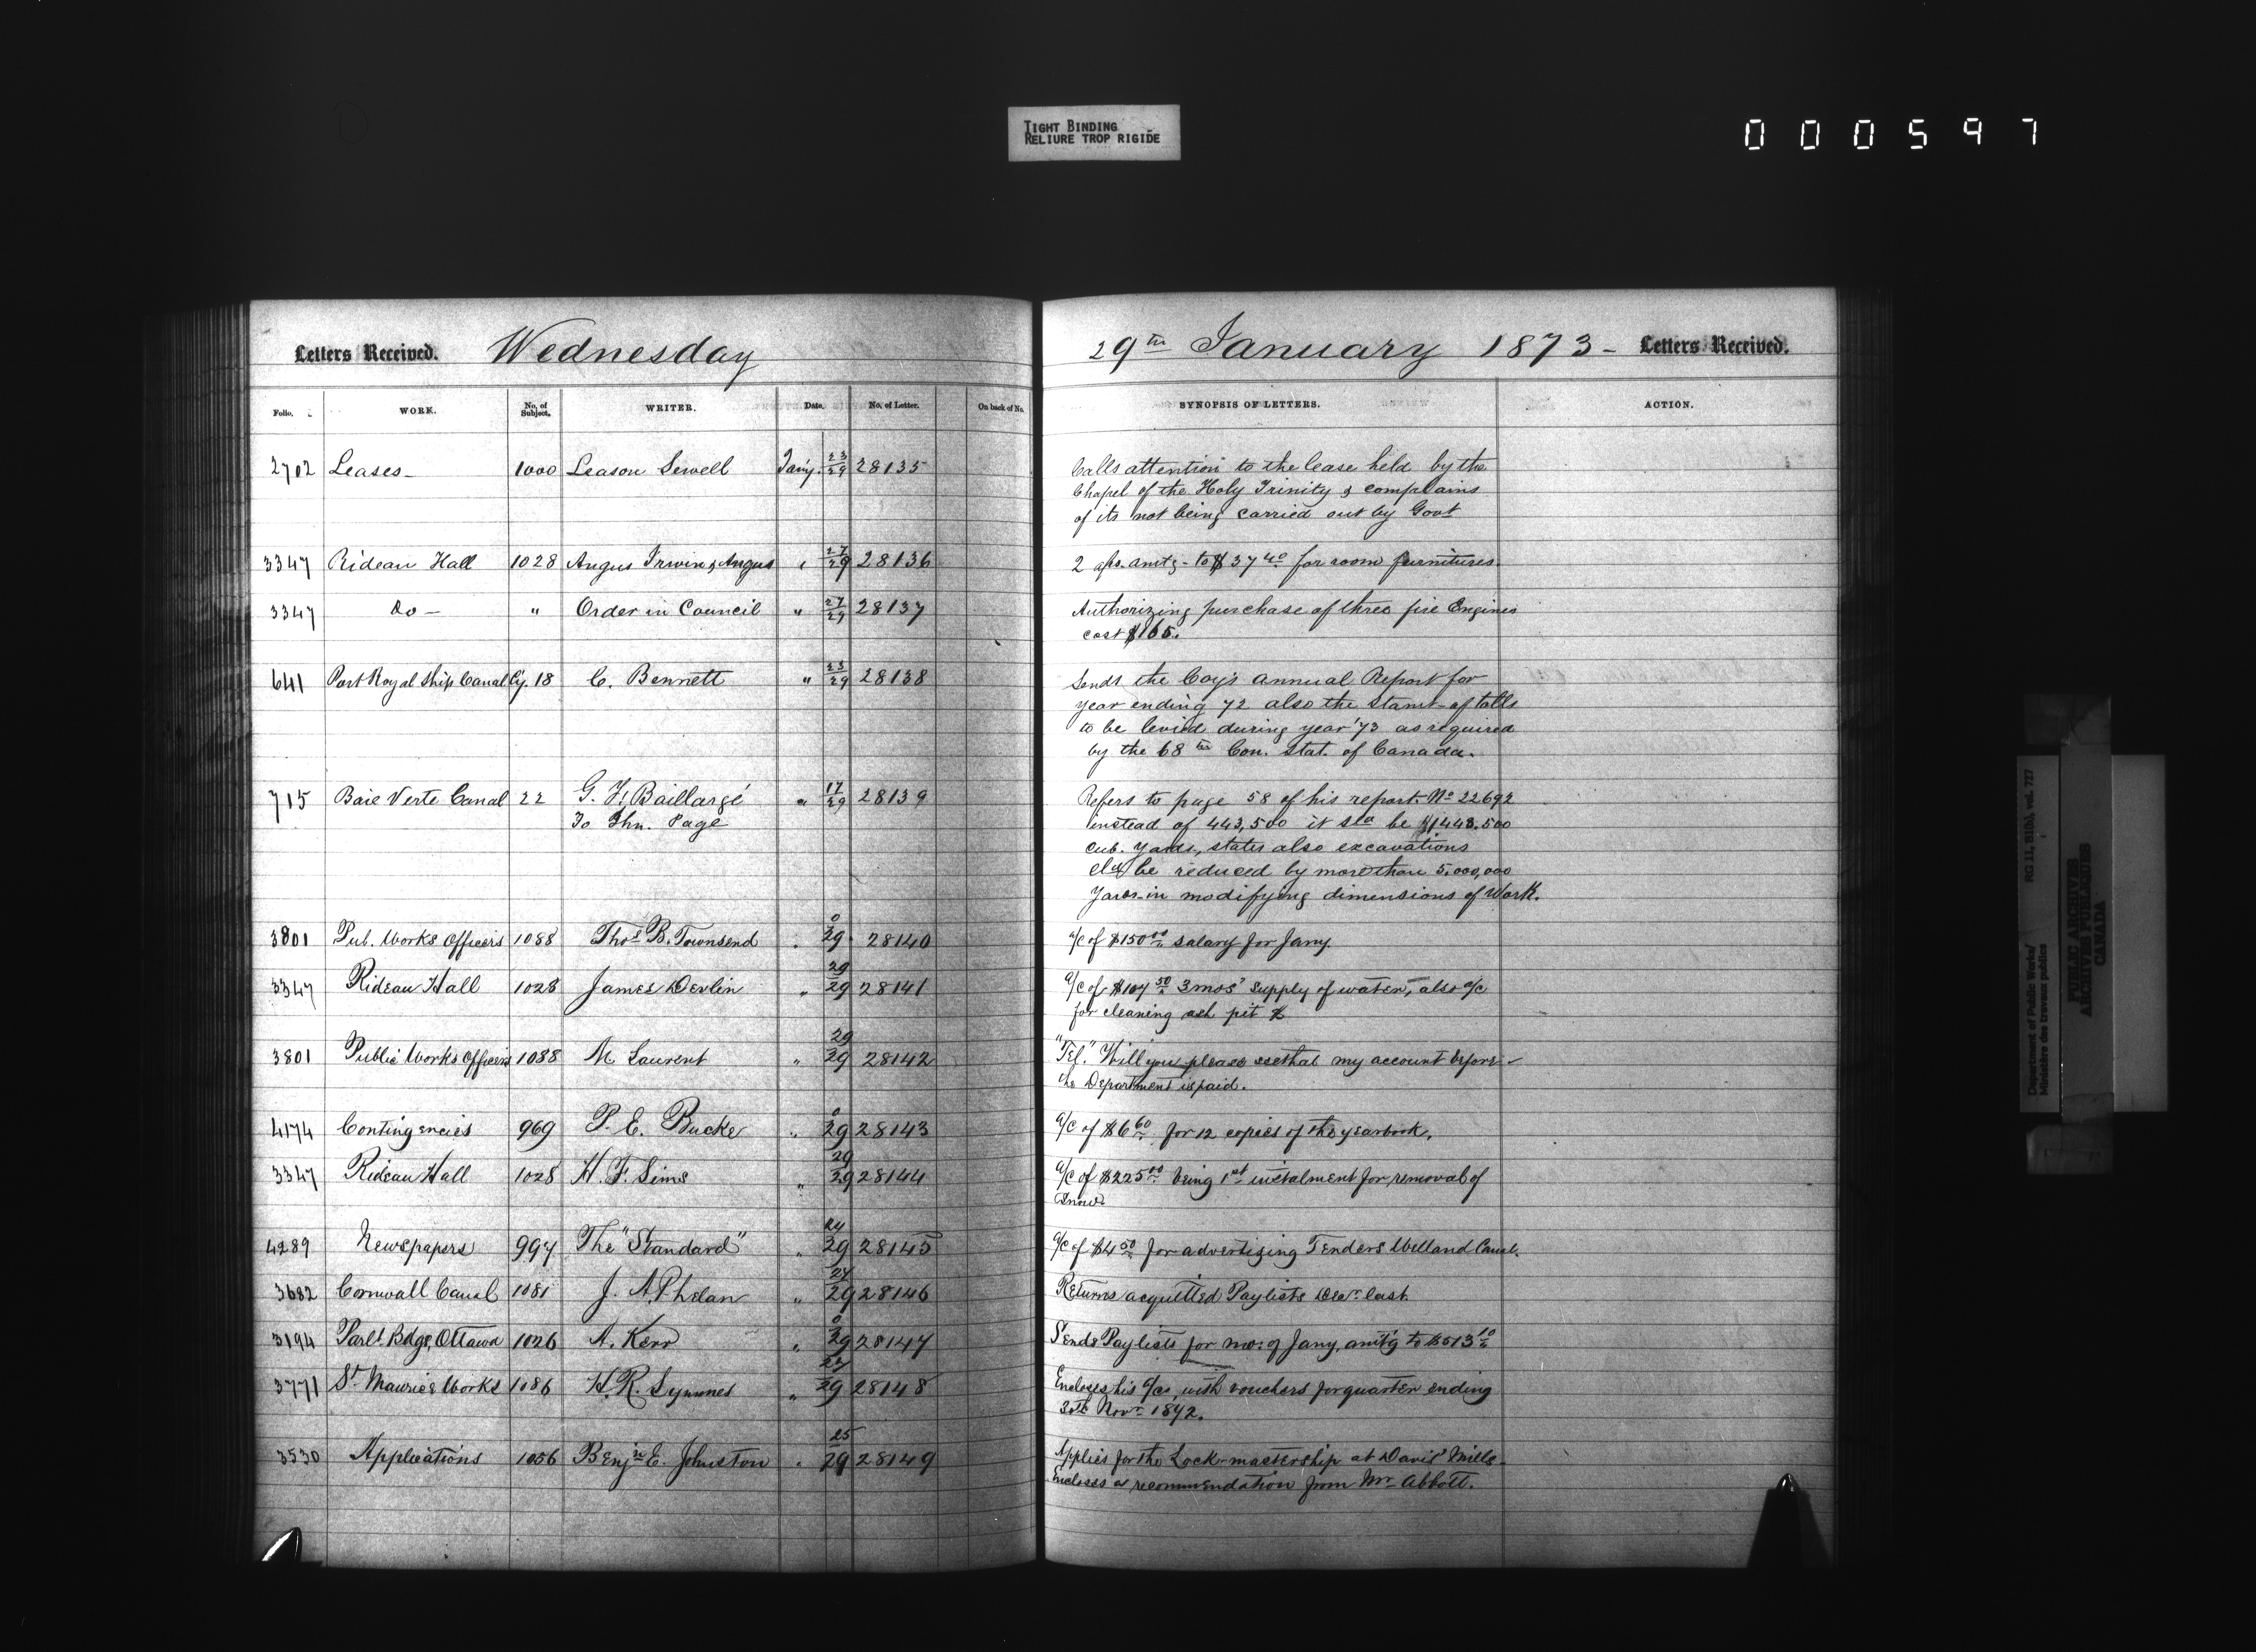 TIGHT BINDING
RELIURE TROP RIGIDE
000597
Letters Received. Wednesday
29th January 1873 - Letters Received.
Folio. WORK. No. of Subject. WRITER. Date. No. of Letter. On back of No. SYNOPSIS OF LETTERS. ACTION.
2702 Leases - 1000 Leason Sewell Jany. 23/29 28135 Calls attention to the lease held by the
Chapel of the Holy Trinity & complains
of its not being carried out by Govt
3347 Rideau Hall 1028 Angus Irwin & Angus " 27/29 28136 2 a/cs. amtg - to $37 40 for room furnitures.
3347 Do - " Order in Council " 27/29 28137 Authorizing purchase of three fire Engines
cost $165.
641 Port Royal Ship Canal Cy. 18 C. Bennett " 23/29 28138 Sends the Coy's annual Report for
year ending 72 also the stamt of tolls
to be levied during year '73 as required
by the 68th Con. Stat. of Canada.
715 Baie Verte Canal 22 G. F. Baillargé " 17/29 28139 Refers to page 58 of his report. No 22692
To Jhn. Page instead of 443,500 it sd be $1443.500
cub. yards, states also excavations
cld be reduced by more than 5.000,000
yards in modifying dimensions of Work.
3801 Pub. Works Officers 1088 Thos B. Townsend " 0/29 28140 a/c of $150 00 salary for Jany
3347 Rideau Hall 1028 James Devlin " 29/29 28141 a/c of $107 50 3 mos' supply of water, also a/c
for cleaning ash pit &
3801 Public Works Officers 1088 M Laurent " 29/29 28142 "Tel." Will you please see that my account before
the Department is paid.
4174 Contingencies 969 P. E. Bucke " 0/29 28143 a/c of $6 60 for 12 copies of the yearbook.
3347 Rideau Hall 1028 H. F. Sims " 29/29 28144 a/c of $225 00 being 1st instalment for removal of
Snow
4289 Newspapers 997 The "Standard" " 24/29 28145 a/c of $4 50 for advertizing Tenders Welland Canal.
3682 Cornwall Canal 1081 J. A. Phelan " 27/29 28146 Returns acquitted Paylists Decr last.
3194 Parlt Bdgs, Ottawa 1026 A. Kerr " 0/29 28147 Sends Paylists for mo: of Jany, amt'g to $513 10
3771 St Maurice Works 1086 H. R. Symmes " 27/29 28148 Encloses his a/cs with vouchers for quarter ending
30th Novr 1872.
3530 Applications 1056 Benjn E. Johnston " 25/29 28149 Applies for the Lock-mastership at Davis' Mills -
Encloses a recommendation from Mr Abbott.
Department of Public Works/ RG 11, B1(b), vol. 727
Ministère des travaux publics
PUBLIC ARCHIVES
ARCHIVES PUBLIQUES
CANADA